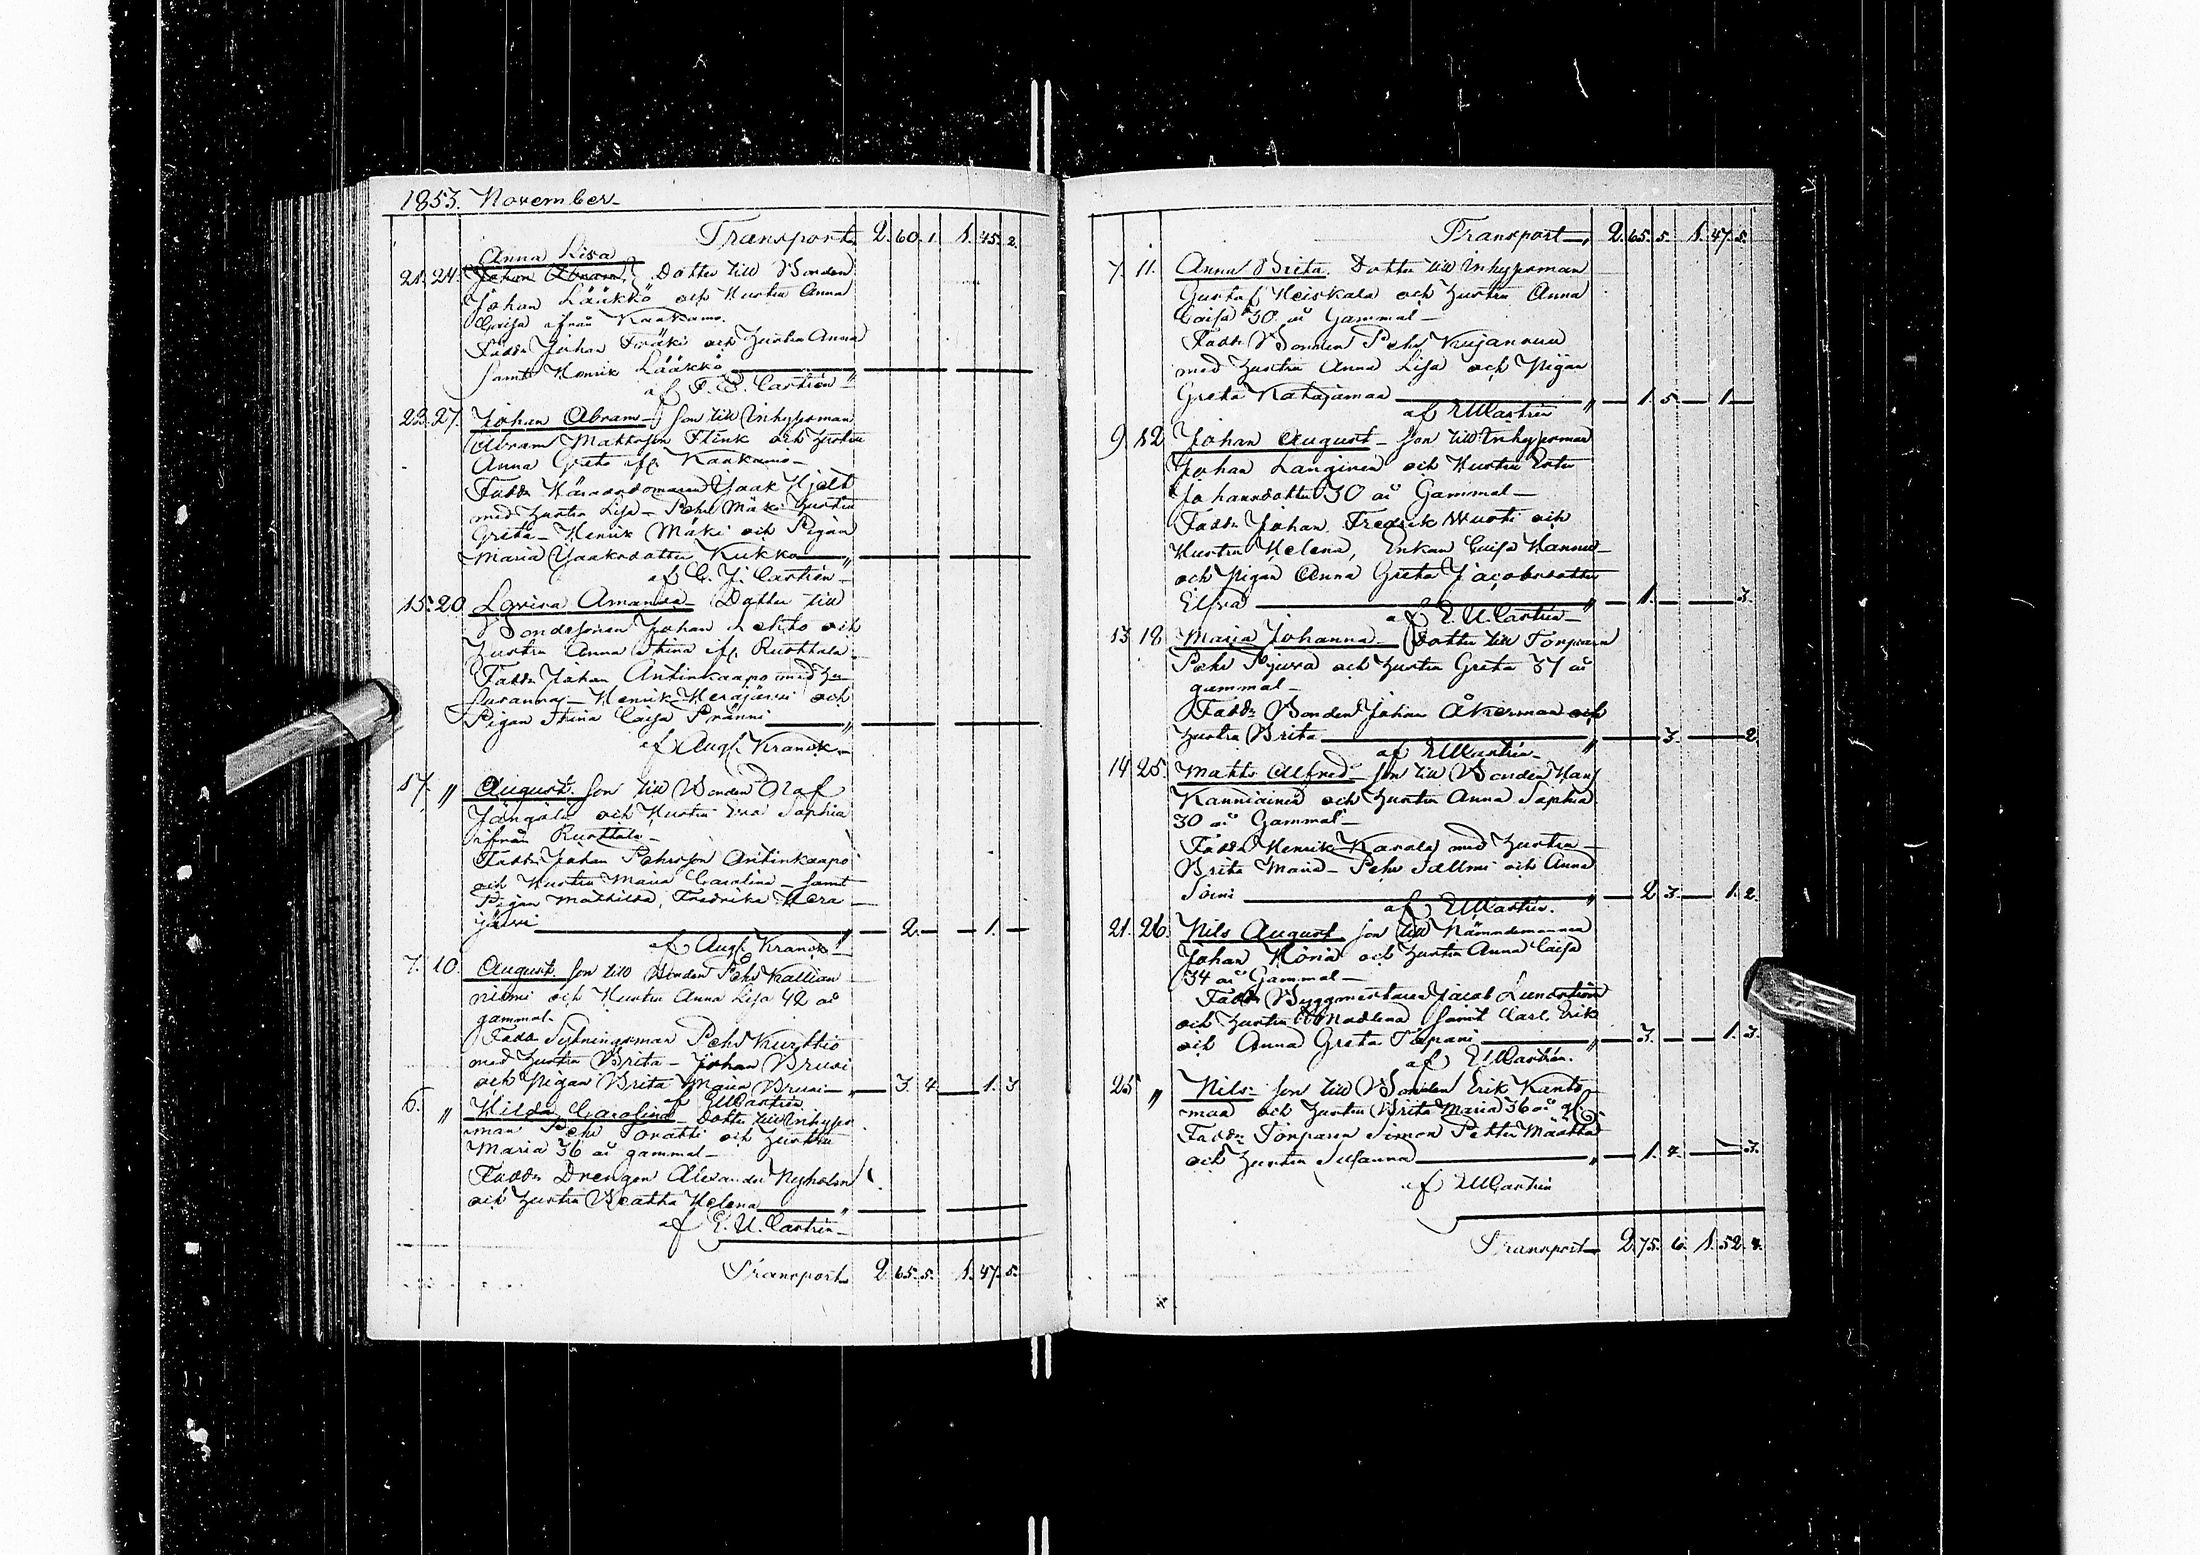 1853. November
Transport 2. 60. 1. 1. 45. 2.
Anna Lisa
21. 24. Johan Abram, Dotter till Bonden
Johan Lääkkö och Hustru Anna
Greta ifrån Kaakamo.
Fadd: Johan Fräki och Hustru Anna
samt Henrik Lääkkö
af F. E. Castrén
23. 27. Johan Abram, son till Inhysesman
Abram Mattsson Flink och Hustru
Anna Greta ifr. Kaakamo
Faddr Häradsdomaren Isaak Hjelt
med Hustru Lisa - Pehr Mäki Hustru
Greta - Henrik Mäki och Pigan
Maria Isaaksdotter Kukko
af C. J. Castrén
15. 20. Lovisa Amanda Dotter till
Bondesonen Johan Lehto och
Hustru Anna Stina ifr. Ruottala
Faddr Johan Antinkaapo med Hu
Susanna - Henrik Herajärvi och
Pigan Stina Caisa Pränni
af Aug. Kranck
17. " August. Son till Bonden Olaf
Jängälä och Hustru Eva Sophia
ifrån Ruottala
Faddr Johan Pehrsson Antinkaapo
och Hustru Maria Carolina samt
Pigan Mathilda Fredrika Hera
järvi 2. 1.
af Aug. Kranck
7. 10. August. son till Bonden Pehr Kallian
niemi och Hustru Anna Lisa 42 år
gammal
Faddr Sexmansman Pehr Kurttio
med Hustru Brita - Johan Brusi
och Pigan Brita Maria Brusi 3. 4. 1. 3
af E U Castrén
6. " Hilda Carolina - Dotter till Inhyses
man Pehr Toratti och Hustru
Maria 36 år gammal
Faddr Drengen Alexander Nyholm
och Hustru Beatha Helena
af E. U. Castrén
Transport 2. 65. 5. 1. 47. 5.
Transport 2. 65. 5. 1. 47. 5.
7. 11. Anna Brita. Dotter till Inhysesman
Gustaf Heiskala och Hustru Anna
Caisa 30 år Gammal
Faddr Bonden Pehr Kujanuu
med Hustru Anna Lisa och Pigan
Greta Katajamaa 1. 5. 1
af E U Castrén
9. 12 Johan August son till Inhysesman
Johan Langinen och Hustru Ester
Johansdotter 30 år Gammal
Faddr Johan Fredrik Wuoti och
Hustru Helena, Enkan Caisa Hannu
och Pigan Anna Greta Jacobsdotter
Elfva 1. 3.
af E. U. Castrén
13. 18. Maria Johanna Dotter till Torparen
Pehr Pejura och Hustru Greta 37 år
gammal
Faddr Bonden Johan Åkerman och
Hustru Brita 3. 2.
af E U Castrén
14. 25. Matts Alfred son till Bonden Hans
Kanniainen och Hustru Anna Sophia
30 år Gammal
Faddr Henrik Karala med Hustru
Brita Maria - Pehr Sallmi och Anna
Soini 2. 3. 1. 2.
af E U Castrén.
21. 26. Nils August son till Nämndemannen
Johan Horia och Hustru Anna Caisa
34 år Gammal
Faddr Byggmästaren Jacob Lundström
och Hustru Madlena samt Carl Erik
och Anna Greta Tapani 3. 1. 3.
af E U Castrén.
25. " Nils son till Bonden Erik Kanto
maa och Hustru Brita Maria 36 år gl
Faddr Torparen Simon Petter Määttä
och Hustru Susanna 1. 4. 3.
af E U Castrén
Transport 2. 75. 6. 1. 52. 4.